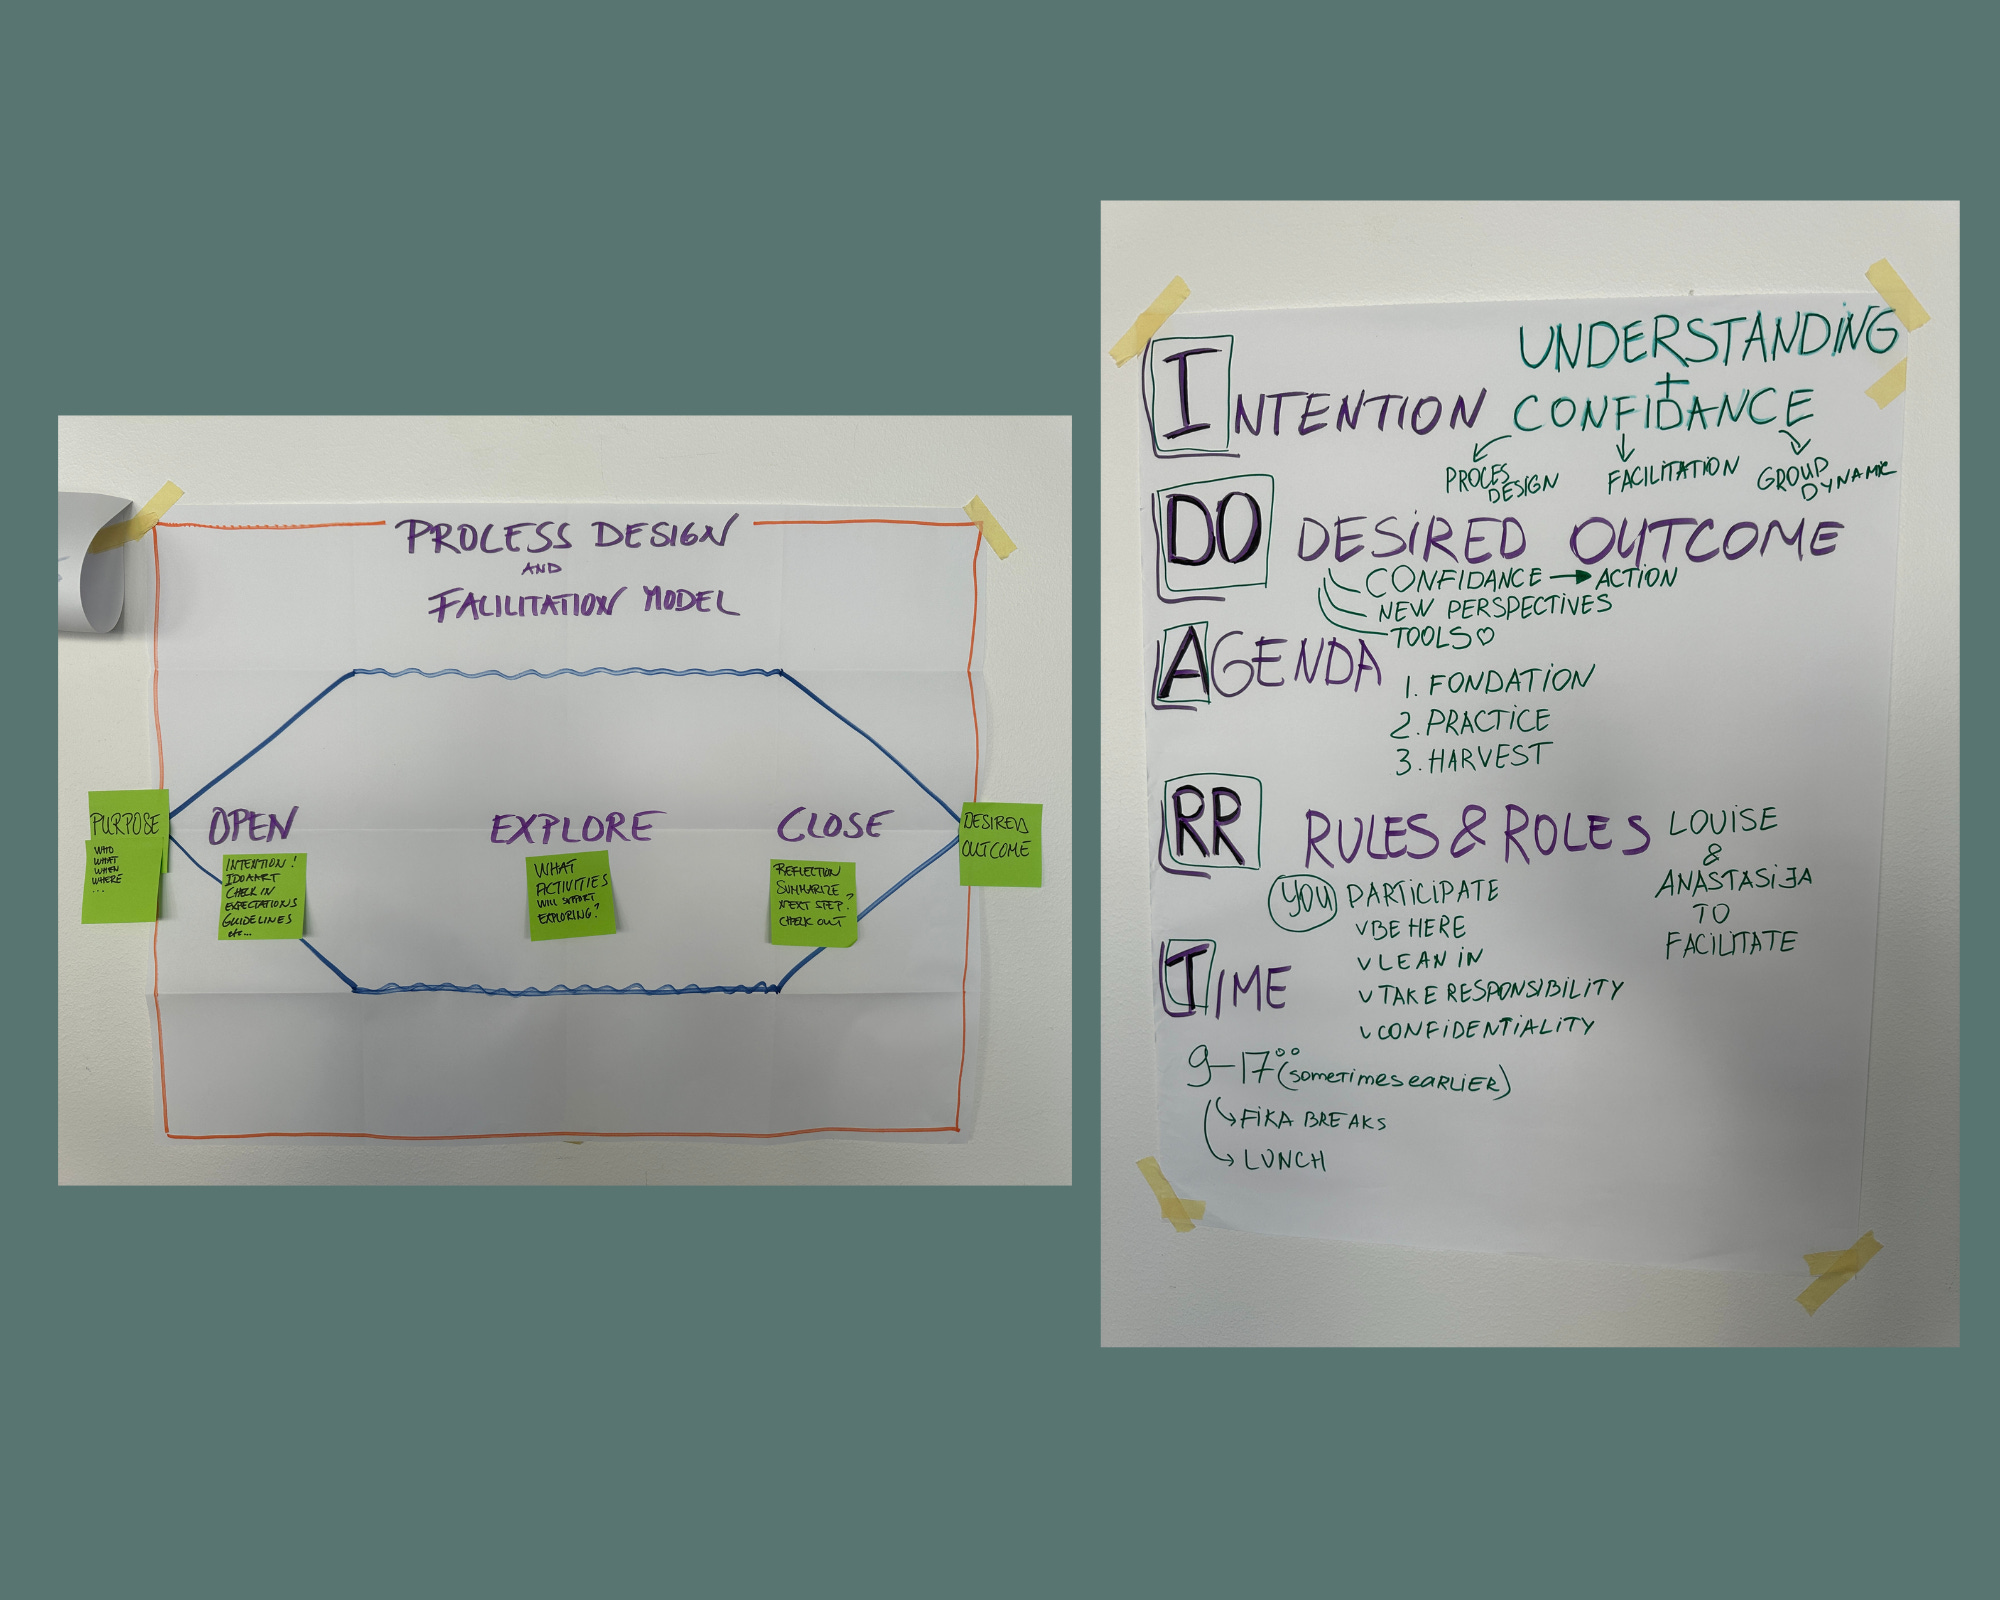 PROCESS DESIGN
AND
FACILITATION MODEL
PURPOSE
WHO
WHAT
WHEN
WHERE
...
OPEN
INTENTION!
IDOARRT
CHECK IN
EXPECTATIONS
GUIDELINES
etc...
EXPLORE
WHAT
ACTIVITIES
WILL SUPPORT
EXPLORING?
CLOSE
REFLECTION
SUMMARIZE
NEXT STEP?
CHECK OUT
DESIRED
OUTCOME
INTENTION
UNDERSTANDING
+
CONFIDANCE
PROCES
DESIGN
FACILITATION
GROUP
DYNAMIC
DO DESIRED OUTCOME
CONFIDANCE → ACTION
NEW PERSPECTIVES
TOOLS ♡
AGENDA
1. FONDATION
2. PRACTICE
3. HARVEST
RR RULES & ROLES
LOUISE
&
ANASTASiJA
TO
FACILITATE
YOU PARTICIPATE
v BE HERE
v LEAN IN
v TAKE RESPONSIBILITY
v CONFIDENTIALITY
TIME
9-17°° (sometimes earlier)
FIKA BREAKS
LUNCH